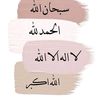 سبحان الله
الحمد لله
لا اله الا الله
الله اكبر